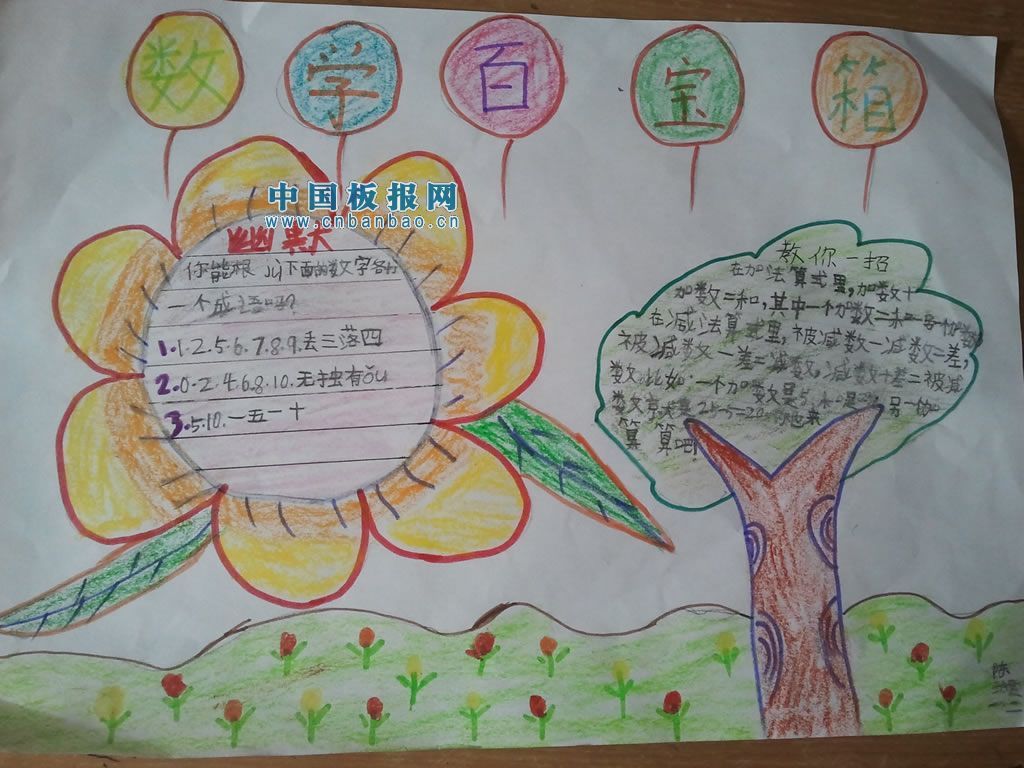 数学百宝箱
中国板报网
www.cnbanbao.cn
幽默
你能根 下面的数字各
一个成语吗?
1.1.2.5.6.7.8.9.丢三落四
2.0.2.4.6.8.10.无独有ǒu
3.5.10.一五一十
教你一招
在加法算式里,加数+
加数=和,其中一个加数=和-另一加数
在减法算式里,被减数-减数=差,
被减数-差=减数,减数+差=被减
数,比如:一个加数是5,和是25,另一加
数 25-5=20, 你也来
算算吧!
陈